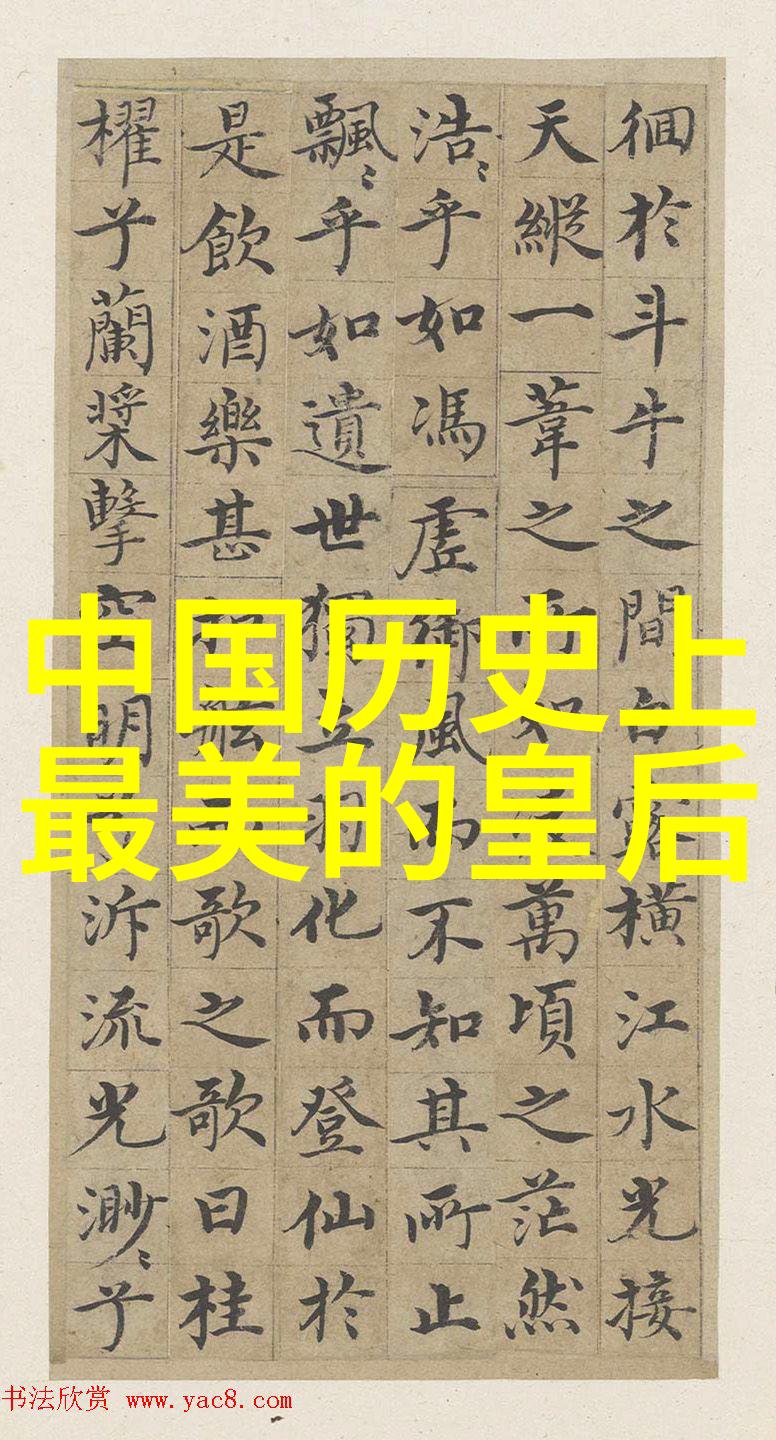 徊於斗牛之間白露橫江水光接
天縱一葦之所如凌萬頃之茫然
浩〻乎如馮虛御風而不知其所止
飄〻乎如遺世獨立羽化而登仙於
是飲酒樂甚扣舷而歌之歌曰桂
櫂兮蘭槳擊空明兮泝流光渺〻兮
中国历史上
最美的皇后
书法欣赏 www.yac8.com